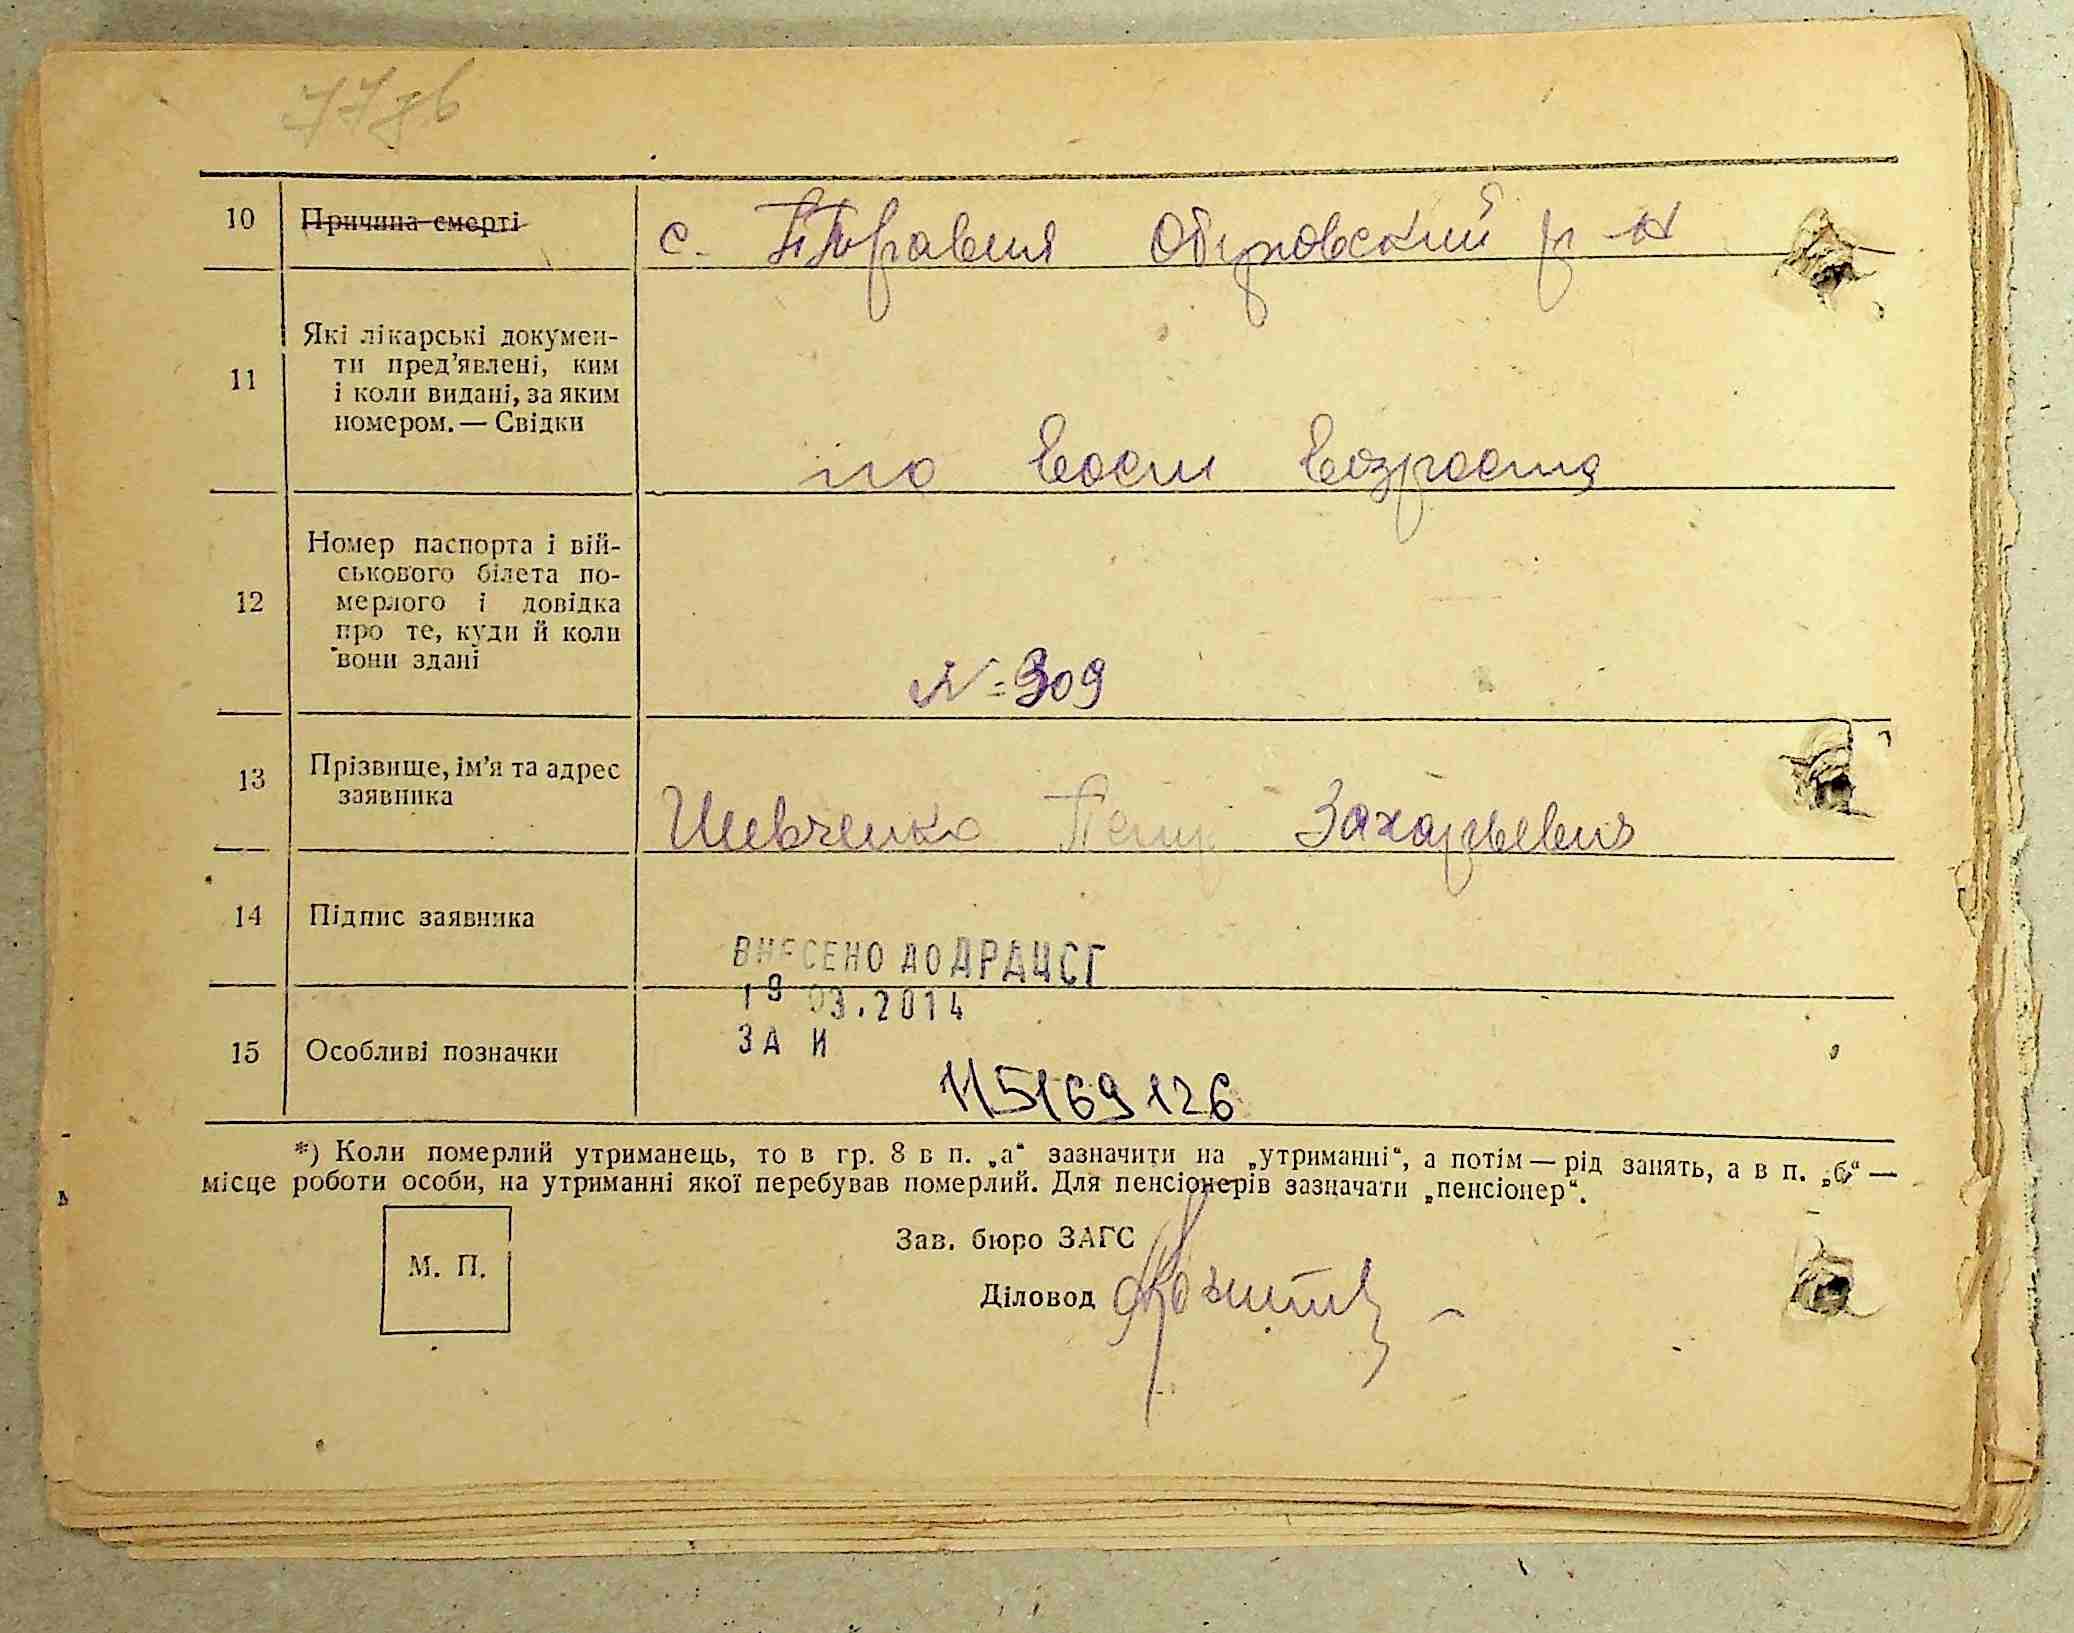 77зв
10 Причина смерті с. Травня Обуховский р-н
11 Які лікарські докумен-
ти пред’явлені, ким
і коли видані, за яким
номером. — Свідки
по восст возраста
12 Номер паспорта і вій-
ськового білета по-
мерлого і довідка
про те, куди й коли
вони здані
№ 309
13 Прізвище, ім’я та адрес
заявника
Шевченко Петр Захарьевич
14 Підпис заявника
ВНЕСЕНО ДО ДРАЦСГ
19 03.2014
ЗА И
15 Особливі позначки
115169126
*) Коли померлий утриманець, то в гр. 8 в п. „а“ зазначити на „утриманні“, а потім — рід занять, а в п. „б“ —
місце роботи особи, на утриманні якої перебував померлий. Для пенсіонерів зазначати „пенсіонер“.
М. П.
Зав. бюро ЗАГС
Діловод